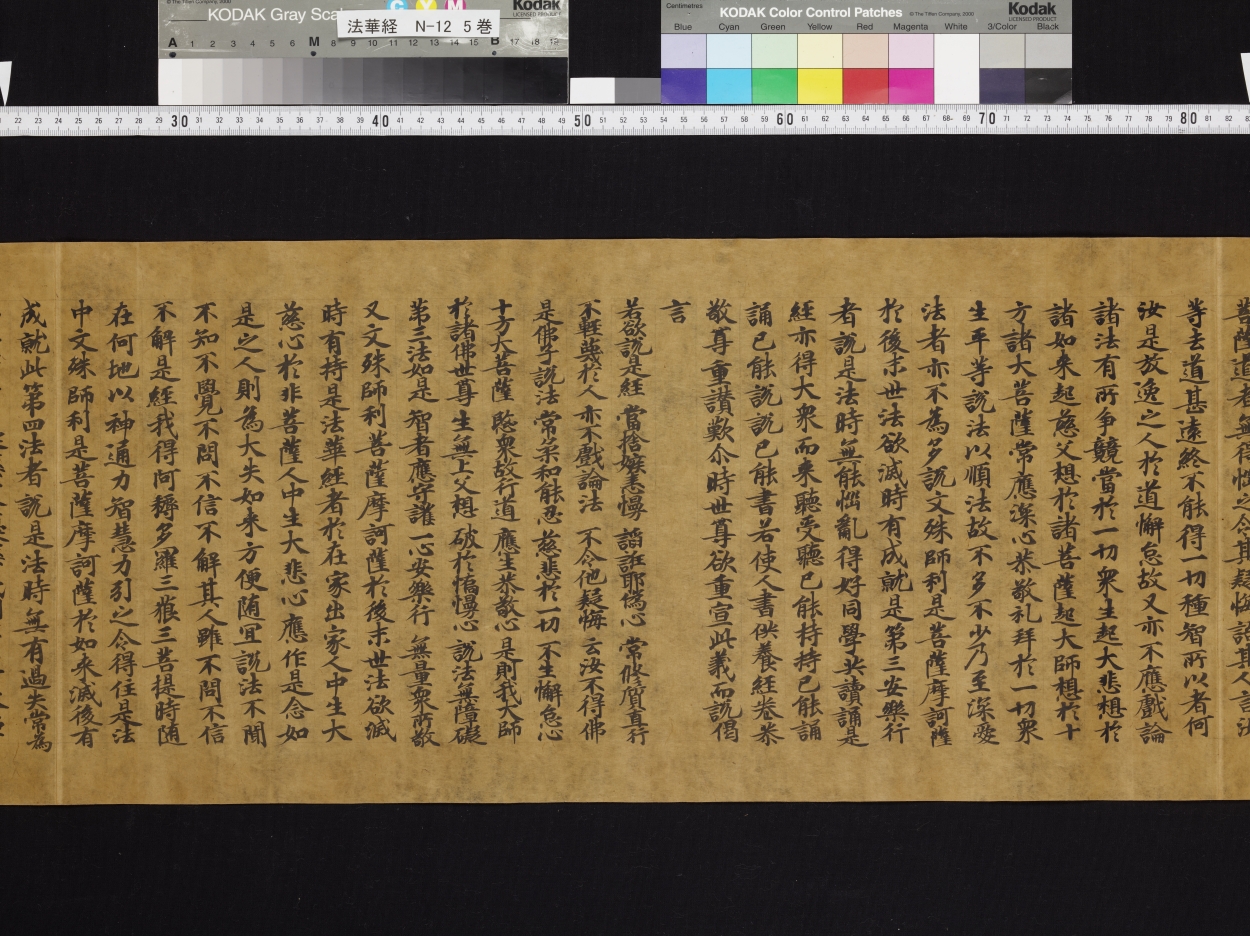 © The Tiffen Company, 2000
KODAK Gray Sca
C Y M
Kodak
LICENSED PRODUCT
法華経 N-12 5巻
A 1 2 3 4 5 6 M 8 9 10 11 12 13 14 15 B 17 18 19
Centimetres
KODAK Color Control Patches
© The Tiffen Company, 2000
Kodak
LICENSED PRODUCT
Blue Cyan Green Yellow Red Magenta White 3/Color Black
22 23 24 25 26 27 28 29 30 31 32 33 34 35 36 37 38 39 40 41 42 43 44 45 46 47 48 49 50 51 52 53 54 55 56 57 58 59 60 61 62 63 64 65 66 67 68 69 70 71 72 73 74 75 76 77 78 79 80 81 82
菩薩道者無得惱之令其疑悔語其人言汝
等去道甚遠終不能得一切種智所以者何
汝是放逸之人於道懈怠故又亦不應戲論
諸法有所争競當於一切衆生起大悲想於
諸如来起慈父想於諸菩薩起大師想於十
方諸大菩薩常應深心恭敬礼拜於一切衆
生平等說法以順法故不多不少乃至深愛
法者亦不為多說文殊師利是菩薩摩訶薩
於後末世法欲滅時有成就是第三安樂行
者說是法時無能惱亂得好同學共讀誦是
經亦得大衆而来聽受聽已能持持已能誦
誦已能說說已能書若使人書供養經卷恭
敬尊重讃歎尒時世尊欲重宣此義而說偈
言
若欲說是經 當捨嫉恚慢 諂誑耶僞心 常修質直行
不輕蔑於人 亦不戲論法 不令他疑悔 云汝不得佛
是佛子說法 常柔和能忍 慈悲於一切 不生懈怠心
十方大菩薩 愍衆故行道 應生恭敬心 是則我大師
於諸佛世尊 生無上父想 破於憍慢心 說法無障礙
第三法如是 智者應守護 一心安樂行 無量衆所敬
又文殊師利菩薩摩訶薩於後末世法欲滅
時有持是法華經者於在家出家人中生大
慈心於非菩薩人中生大悲心應作是念如
是之人則為大失如来方便随冝說法不聞
不知不覺不問不信不解其人雖不問不信
不解是經我得阿耨多羅三藐三菩提時随
在何地以神通力智慧力引之令得住是法
中文殊師利是菩薩摩訶薩於如来滅後有
成就此第四法者說是法時無有過失常為